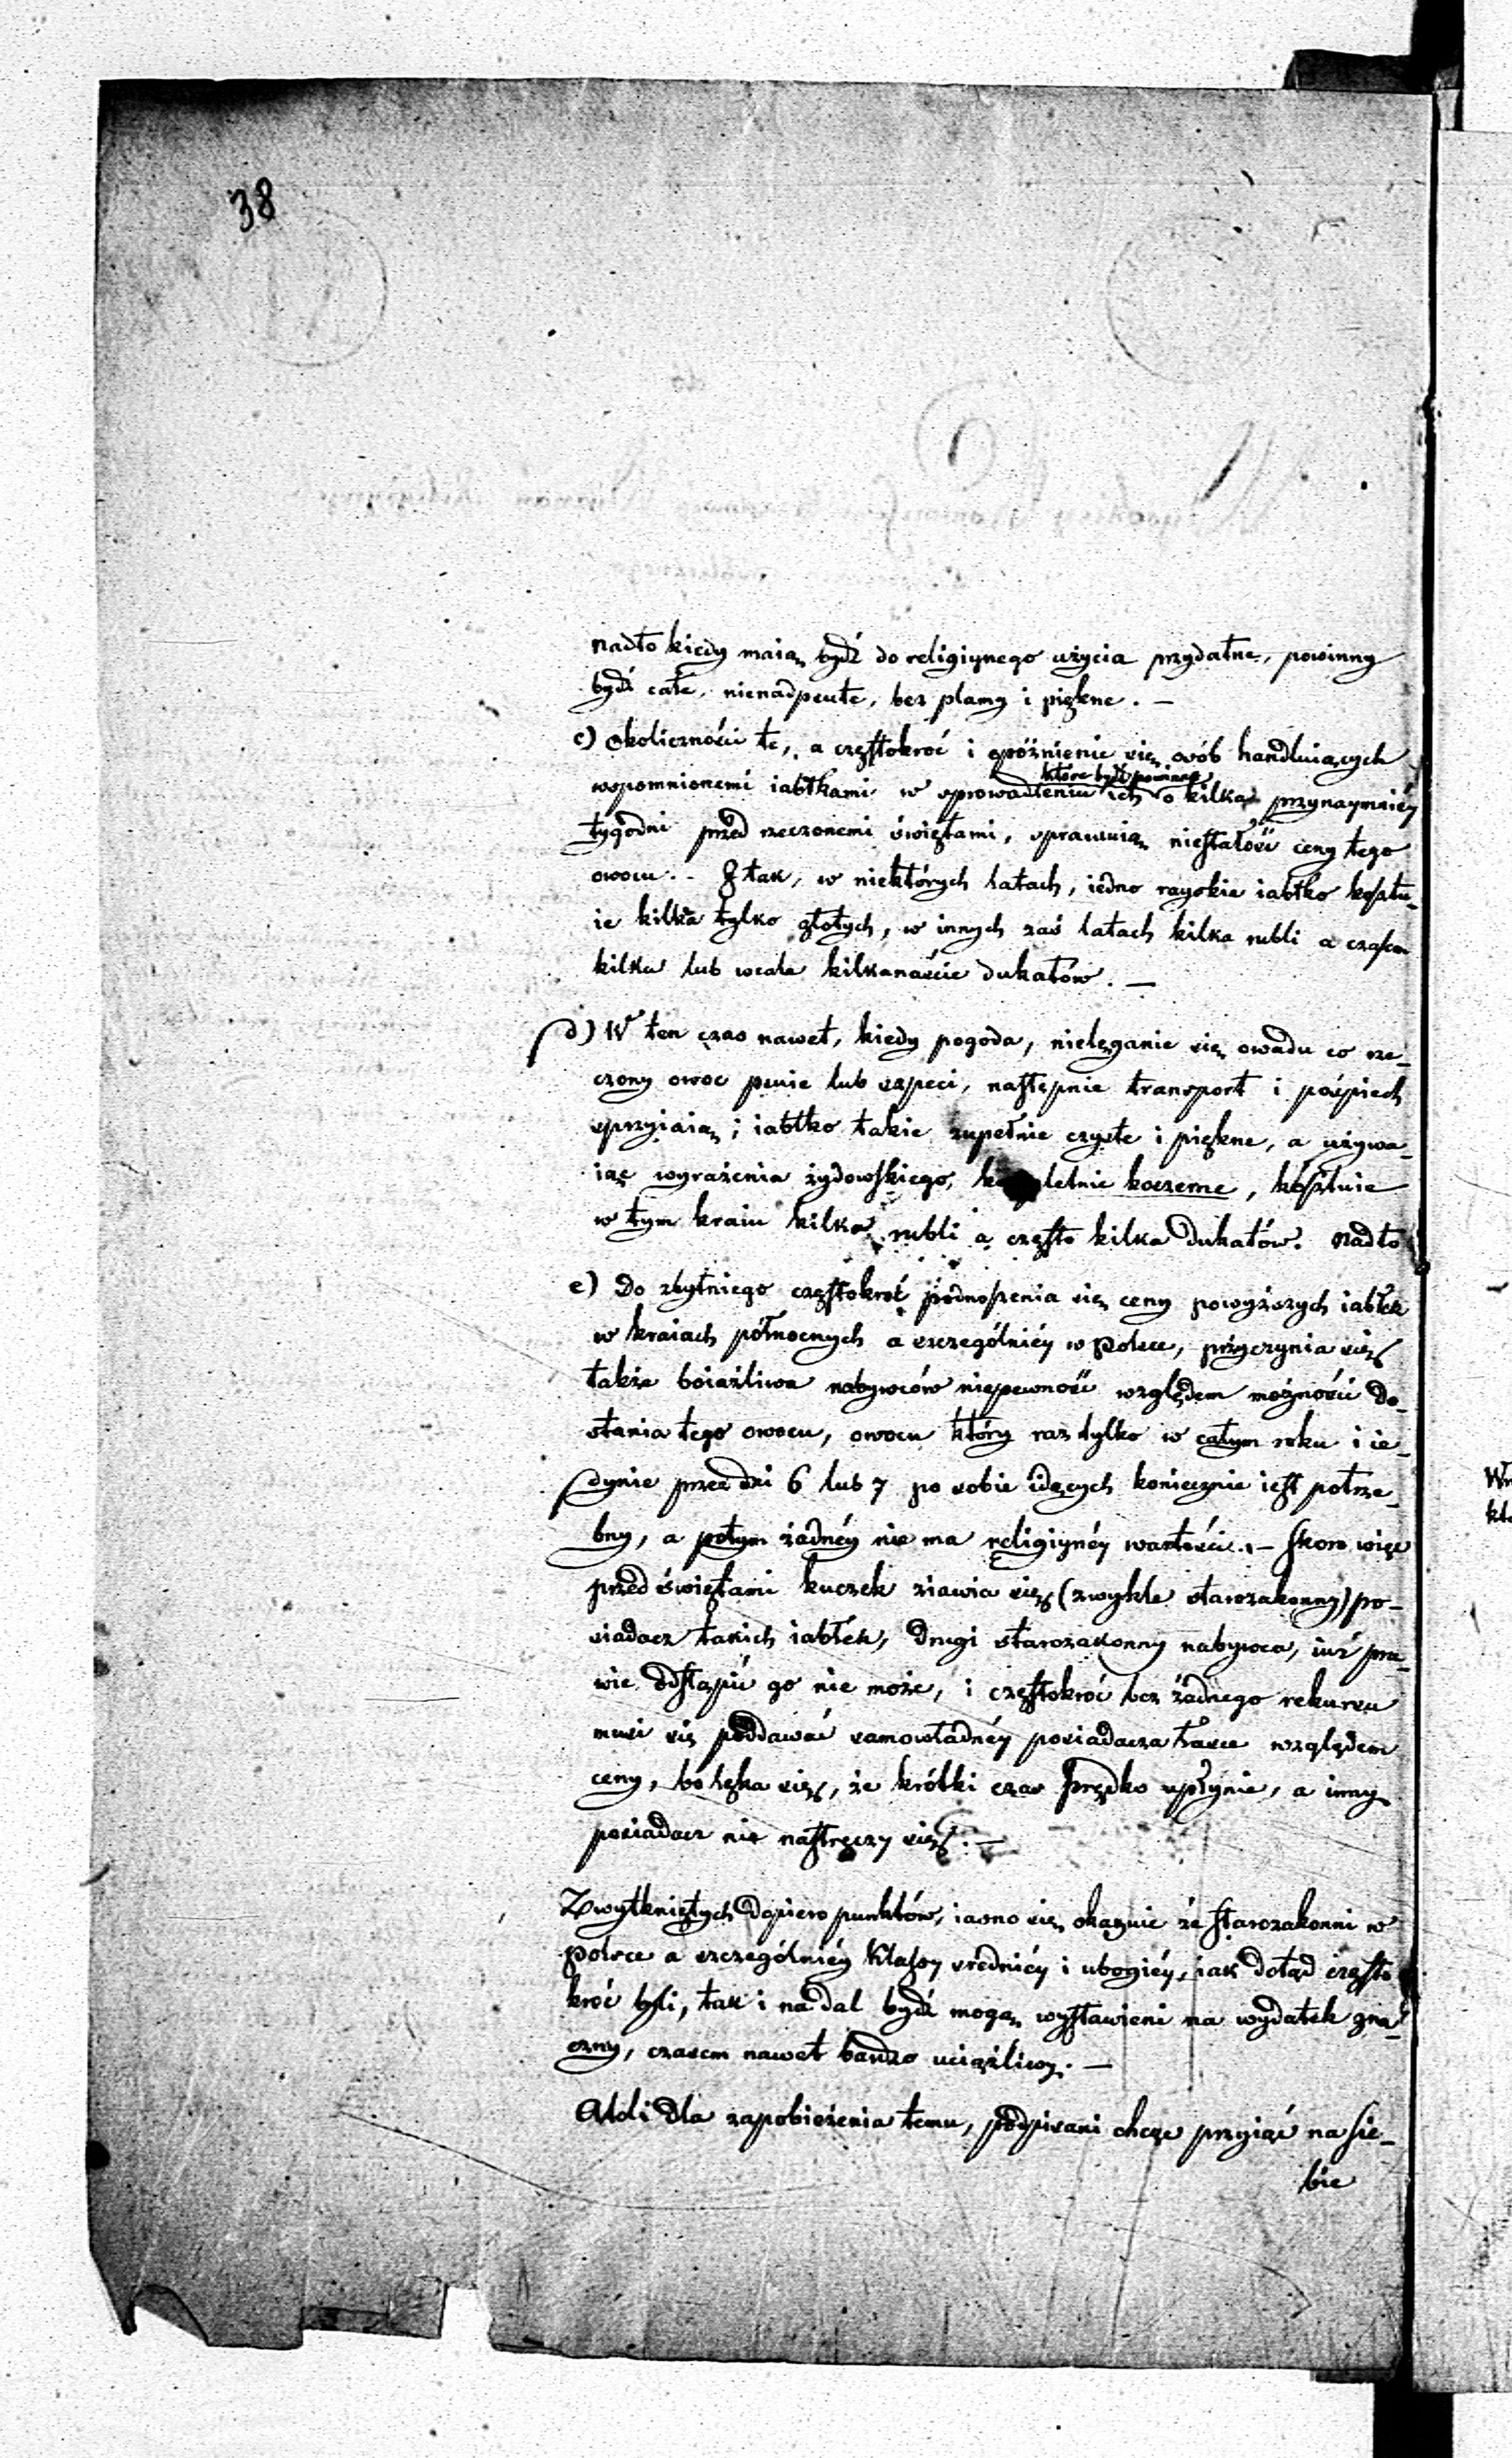 38
nadto kiedy maią bydź do religiynego użycia przydatne, powinny
bydź całe, nienadpsute, bez plamy i piękne. —
c) Okoliczności te, a częstokroć i spóźnienie się osób handluiących
które bydź powinno
wspomnionemi iabłkami w sprowadzeniu ich o kilka przynaymniéy
tygodni przed rzeczonemi świętami, sprawuią niestałość ceny tego
owocu. - I tak, w niektórych latach, iedno rayskie iabłko kosztu-
ie kilka tylko złotych, w innych zaś latach kilka rubli a czasem
kilka lub wcale kilkanaście dukatów. —
d) W ten czas nawet, kiedy pogoda, nielęganie się owadu co rze-
czony owoc psuie lub szpeci, następnie transport i pośpiech
sprzyiaią; iabłko takie zupełnie czyste i piękne, a używa-
iąc wyrażenia żydowskiego, kompletnie koszerne, kosztuie
w tym kraiu kilka rubli a często kilka dukatów. Nadto
e) Do zbytniego częstokroć podnoszenia się ceny powyższych iabłek
w kraiach północnych a szczególniéy w Polsce, przyczynia się
także boiaźliwa nabywców niepewność względem możności do-
stania tego owocu, owocu który raz tylko w całym roku i ie-
dynie przez dni 6 lub 7 po sobie idących koniecznie iest potrze-
bny, a potym żadnéy nie ma religiynéy wartości. — Skoro więc
przed świętami kuczek ziawia się (zwykle starozakonny) po-
siadacz takich iabłek, drugi starozakonny nabywca, iuż pra-
wie odstąpić go nie może, i częstokroć bez żadnego rekursu
musi się poddawać samowładnéy posiadacza taxie względem
ceny, bo lęka się, że krótki czas prędko upłynie, a inny
posiadacz nie nastręczy się. —
Z wytkniętych dopiero punktów, iasno się okazuie że starozakonni w
Polsce a szczególniéy klassy średniéy i ubogiéy, iak dotąd często
kroć byli, tak i nadal bydź mogą wystawieni na wydatek zna-
czny, czasem nawet bardzo uciążliwy. —
Otóż dla zapobieżenia temu, podpisani chcąc przyiąć na sie-
bie